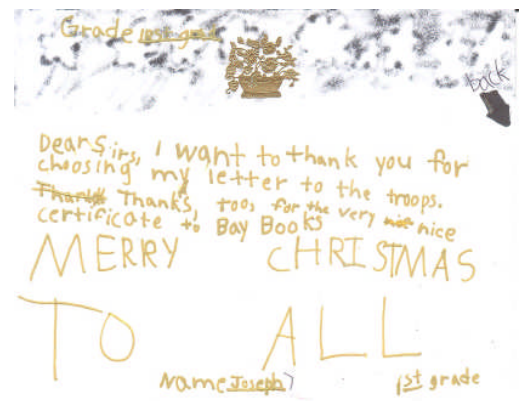 Grade
back
Dear Sirs, I want to thank you for
choosing my letter to the troops.
Thanks, too, for the very nice
certificate to Bay Books
MERRY CHRISTMAS
TO ALL
Name Joseph 1st grade